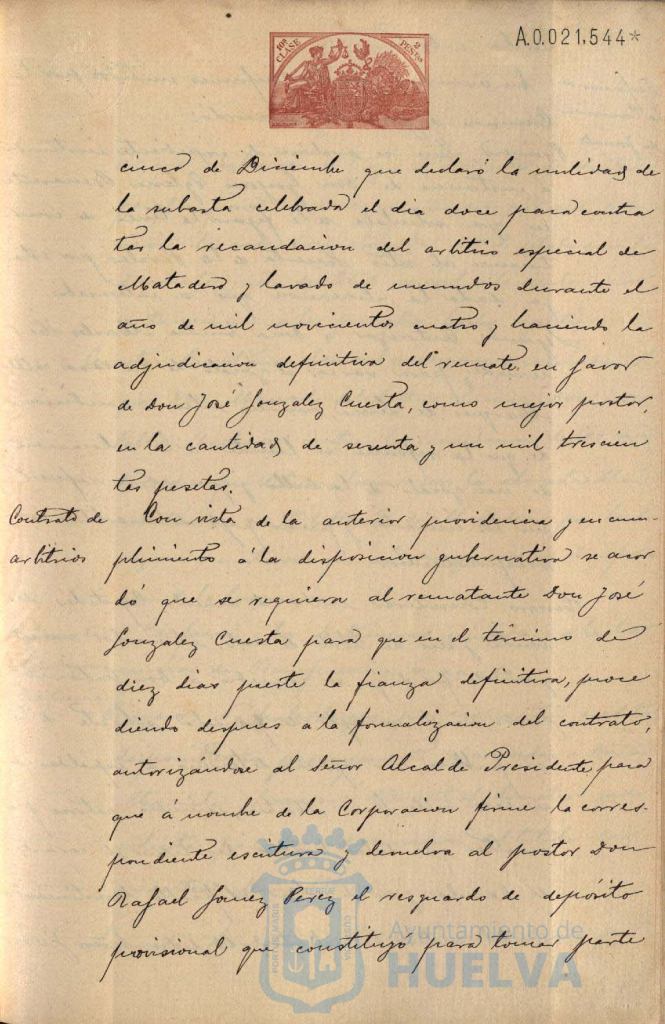 A.0.021,544*
10ª CLASE
2 PESETAS
cinco de Diciembre que declaró la validad de
la subasta celebrada el dia doce para contra
tar la recaudacion del arbitrio especial de
Matadero y lavado de menudos durante el
año de mil novecientos cuatro y haciendo la
adjudicacion definitiva del remate en favor
de Don José Gonzalez Cuesta, como mejor postor,
en la cantidad de sesenta y un mil trescien
tas pesetas.
Contrato de
arbitrios
Con vista de la anterior providencia y en cum-
plimiento á la disposicion gubernativa se acor
dó que se requiera al rematante Don José
Gonzalez Cuesta para que en el término de
diez dias preste la fianza definitiva, proce
diendo despues á la formalizacion del contrato,
autorizándose al Señor Alcalde Presidente para
que á nombre de la Corporacion firme la corres
pondiente escritura y devuelva al postor Don
Rafael Gomez Perez el resguardo de depósito
provisional que constituyó para tomar parte
Ayuntamiento de
HUELVA